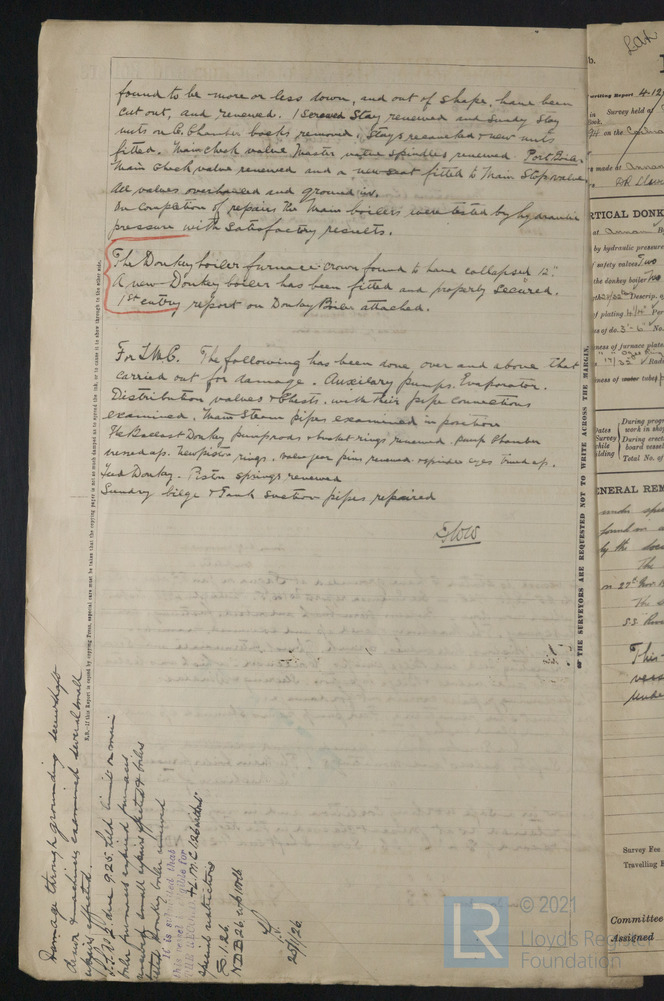 found to be more or less down, and out of shape, have been
cut out, and renewed. 1 Screwed Stay renewed and Sundry Stay
nuts on C. Chamber backs removed, Stays recaulked & new nuts
fitted. Main check valve Master valve Spindles renewed. Port Boiler
Main check valve renewed and a new seat fitted to Main Stop valve
All valves overhauled and ground in.
On Completion of repairs the Main boilers were tested by hydraulic
pressure with Satisfactory results.
The Donkey boiler furnace crown found to have collapsed 12".
A new Donkey boiler has been fitted and properly Secured.
1st entry report on Donkey Boiler attached.
For L.M.C. The following has been done over and above that
carried out for damage. Auxilary pumps. Evaporator.
Distribution valves & Chests, with their pipe connections
examined. Main Steam pipes examined in position
The Ballast Donkey pump rods & bucket rings renewed pump Chamber
rings. valve gear pins renewed
Feed Donkey. Piston springs renewed
Sundry bilge & Tank suction pipes repaired
THE SURVEYORS ARE REQUESTED NOT TO WRITE ACROSS THE MARGIN.
N.B.—If this Report is copied by copying Press, especial care must be taken that the copying paper is not so much damped as to spread the ink, or to cause it to show through to the other side.
Damage through grounding screwshaft
drawn & machinery examined several small
repairs effected.
due 9.25, held limit on main
boiler removed repaired furnaces
small repairs effected & boiler
tested, donkey boiler renewed
It is submitted that
this vessel is eligible for
special instructions
NDB 26
25/1/26
Survey held at
on the
made at
RTICAL DONK
at Annan
by hydraulic pressure
safety valves Two
the donkey boiler
Descrip. o
f plating
s of do. 3'- 6"
ness of furnace plate
ness of
Dates
Survey
while
lding
During progr
work in shop
During erect
board vessel
Total No. of
ENERAL REM
under spe
found in a
by the
The
on 27th Nov
The s
S.S.
This
vess
unde
Survey Fee
Travelling E
Committee
Assigned
LR
© 2021
Lloyd's Register
Foundation